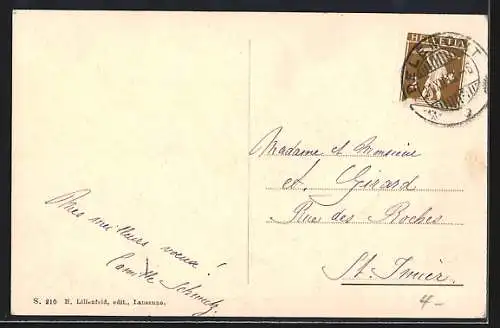 HELVETIA
Madame et Monsieur
et. Girard
Rue des Roches
St. Imier.
Mes meilleurs voeux!
Camille Schmutz.
S. 210 R. Lilienfeld, edit., Lausanne.
4-